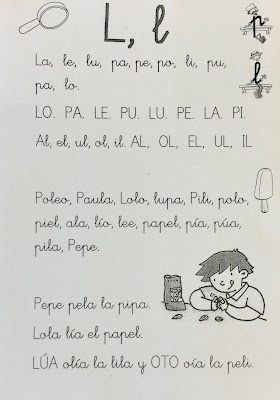 L, l
p
l
La, le, lu, pa, pe, po, li, pu,
pa, lo.
LO. PA. LE. PU. LU. PE. LA. PI.
Al, el, ul, ol, il. AL, OL, EL, UL, IL
Poleo, Paula, Lolo, lupa, Pili, polo,
piel, ala, lío, lee, papel, pía, púa,
pila, Pepe.
Pepe pela la pipa.
Lola lía el papel.
LÚA olía la lila y OTO oía la peli.